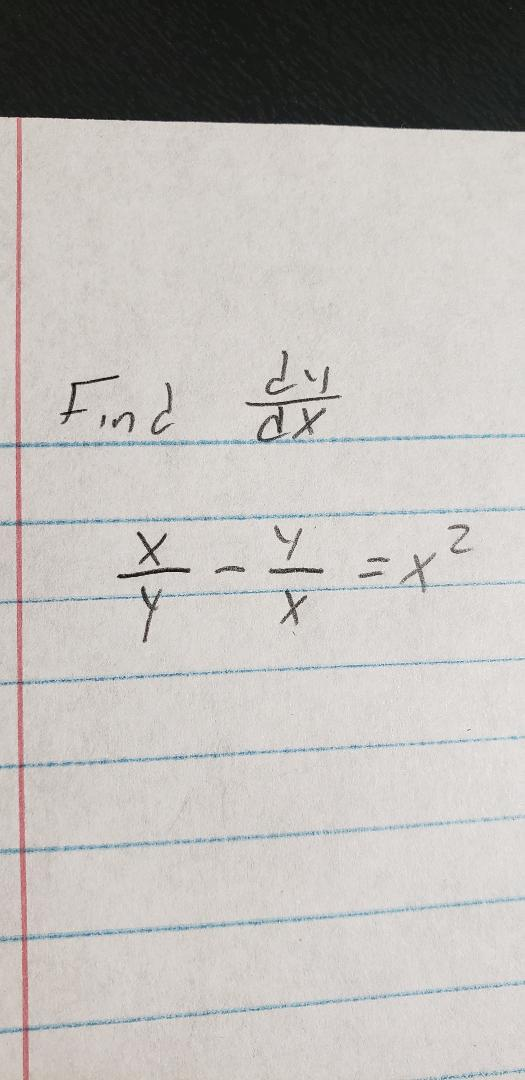 Find dy/dx
x/y - y/x = x²